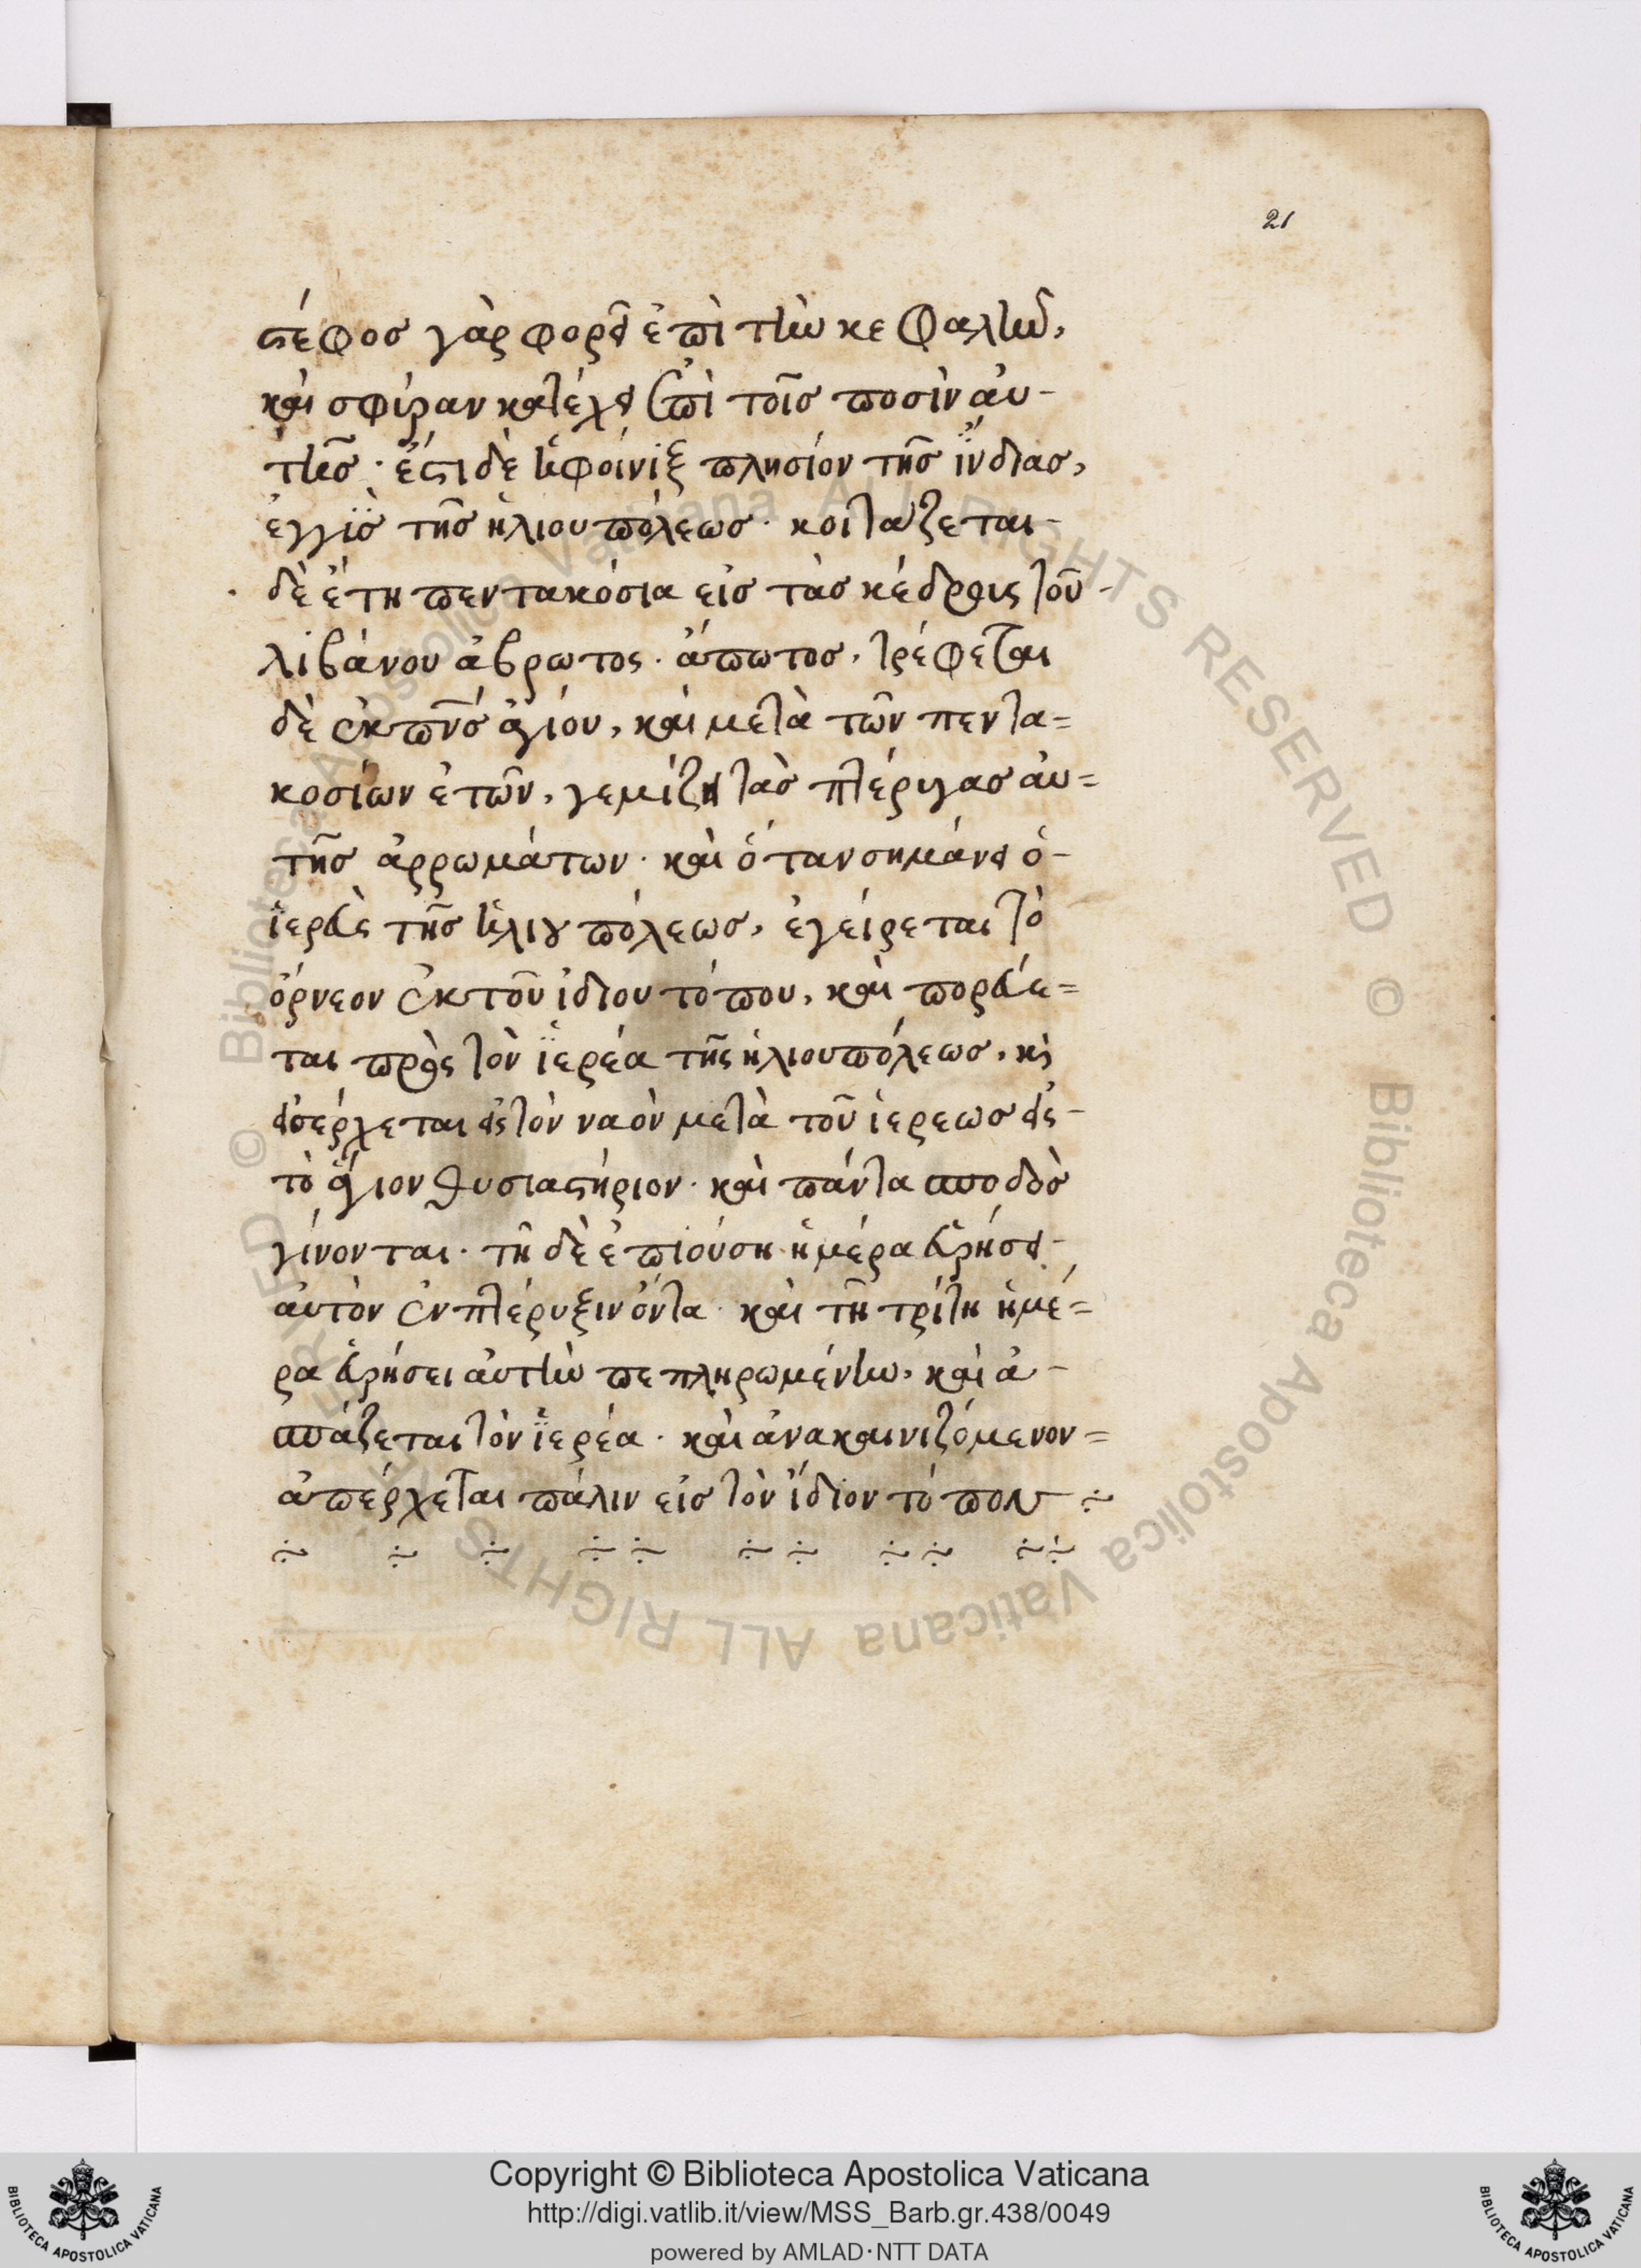 21
στέφος γὰρ φορεῖ ἐπὶ τὴν κεφαλὴν,
καὶ σφύραν κατέχει ἐπὶ τοῖς ποσὶν αὐ-
τῆς· ἔστι δὲ ἡ φοίνιξ πλησίον τῆς ἰνδίας,
ἐγγὺς τῆς ἡλιουπόλεως· κοιτάζεται
δὲ ἔτη πεντακόσια εἰς τὰς κέδρους τοῦ
λιβάνου ἄβρωτος· ἄποτος, τρέφεται
δὲ ἐκ πνς ἁγίου, καὶ μετὰ τῶν πεντα=
κοσίων ἐτῶν, γεμίζει τὰς πτέρυγας αὐ=
τῆς ἀρρωμάτων· καὶ ὅταν σημάνει ὁ-
ἱερεὺς τῆς ἡλιουπόλεως, ἐγείρεται τὸ
ὄρνεον ἐκ τοῦ ἰδίου τόπου, καὶ πορεύε=
ται πρὸς τὸν ἱερέα τῆς ἡλιουπόλεως, κὶ
εἰσέρχεται εἰς τὸν ναὸν μετὰ τοῦ ἱερεως εἰς-
τὸ ἅγιον θυσιαστήριον· καὶ πάντα σποδὸς
γίνονται· τῆ δὲ ἐπιούση ἡμέρα εὑρήσει-
αὐτὸν ἐν πτέρυξιν ὄντα· καὶ τῆ τρίτη ἡμέ=
ρα εὑρήσει αὐτὴν πεπληρωμένην, καὶ ἀ-
σπάζεται τὸν ἱερέα· καὶ ἀνακαινιζόμενον=
ἀπέρχεται πάλιν εἰς τὸν ἴδιον τόπον
Copyright © Biblioteca Apostolica Vaticana
http://digi.vatlib.it/view/MSS_Barb.gr.438/0049
powered by AMLAD·NTT DATA
BIBLIOTECA APOSTOLICA VATICANA
BIBLIOTECA APOSTOLICA VATICANA
© Biblioteca Apostolica Vaticana ALL RIGHTS RESERVED © Biblioteca Apostolica Vaticana ALL RIGHTS RESERVED